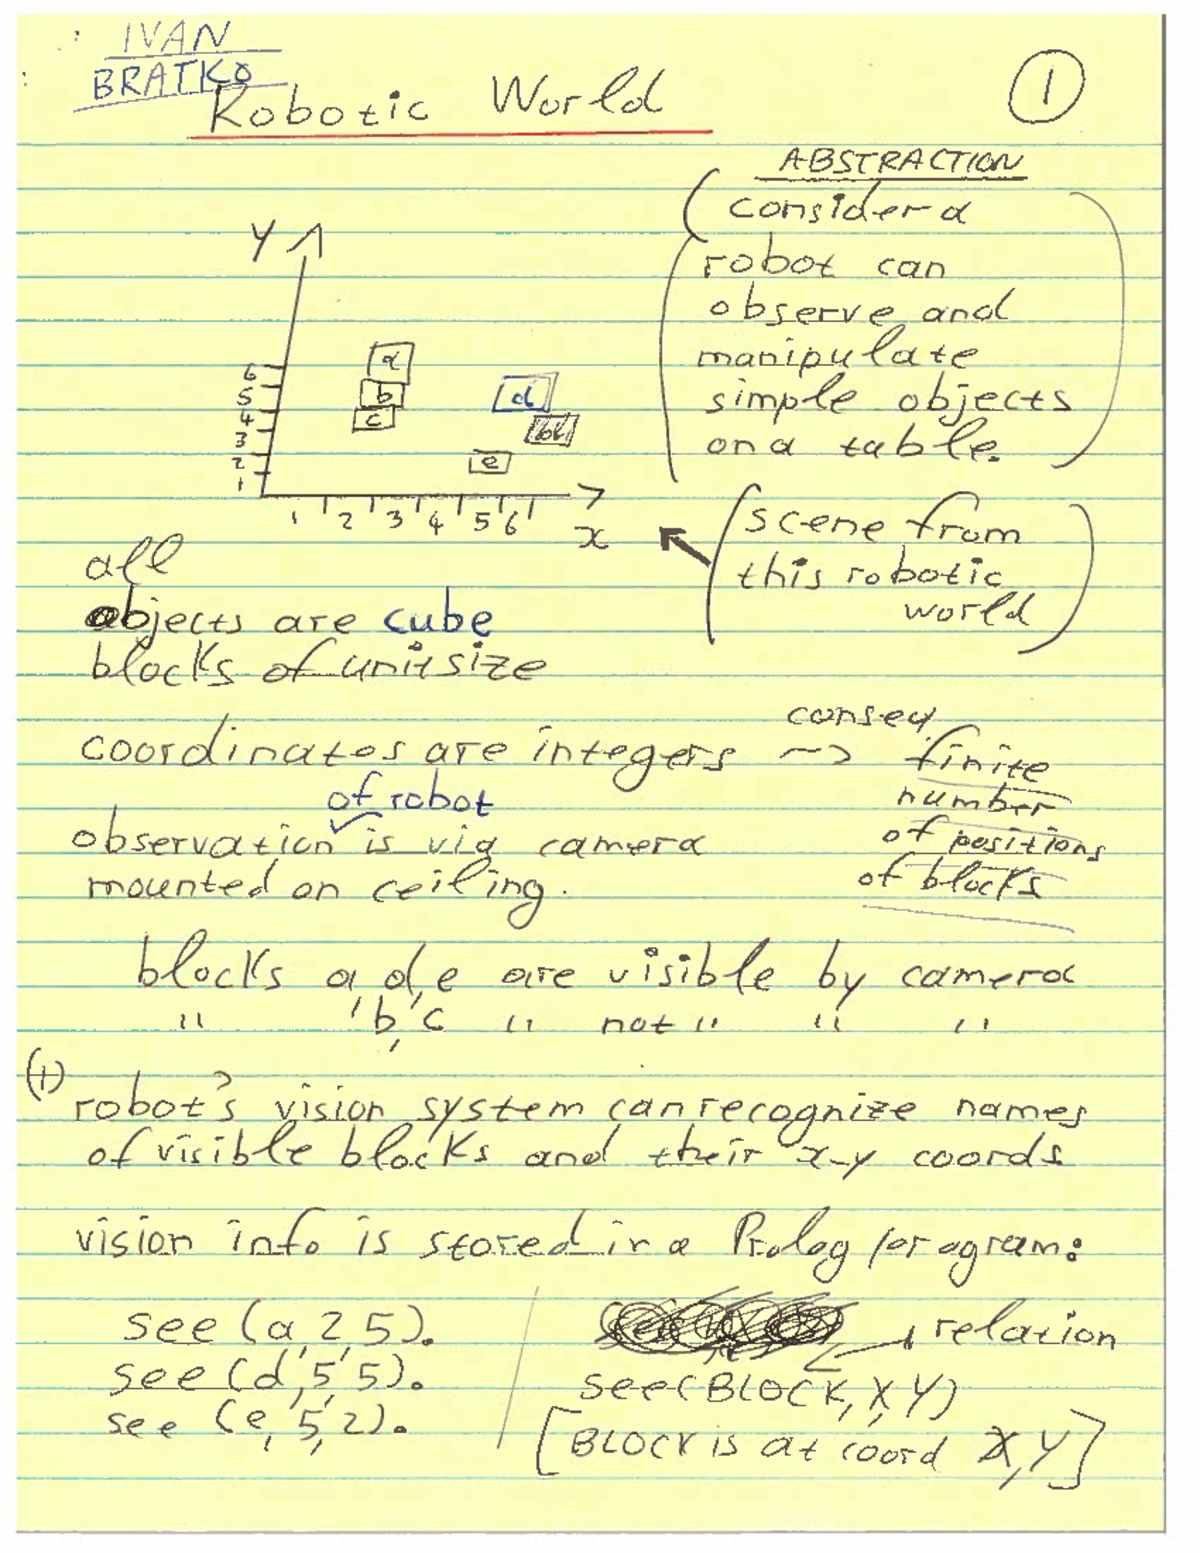 IVAN
BRATKO
Robotic World
1
ABSTRACTION
consider a
robot can
observe and
manipulate
simple objects
on a table.
Y
6
5
4
3
2
1
a
b
c
d
e
1 2 3 4 5 6
x
scene from
this robotic
world
all
objects are cube
blocks of unit size
coordinates are integers ~> conseq.
finite
number
of positions
of blocks
of robot
observation is via camera
mounted on ceiling.
blocks a, d, e are visible by camera
" b, c " not " " "
(1)
robot's vision system can recognize names
of visible blocks and their x-y coords
vision info is stored in a Prolog program:
see (a, 2, 5).
see (d, 5, 5).
see (e, 5, 2).
relation
see(BLOCK, X, Y)
[BLOCK is at coord X, Y]